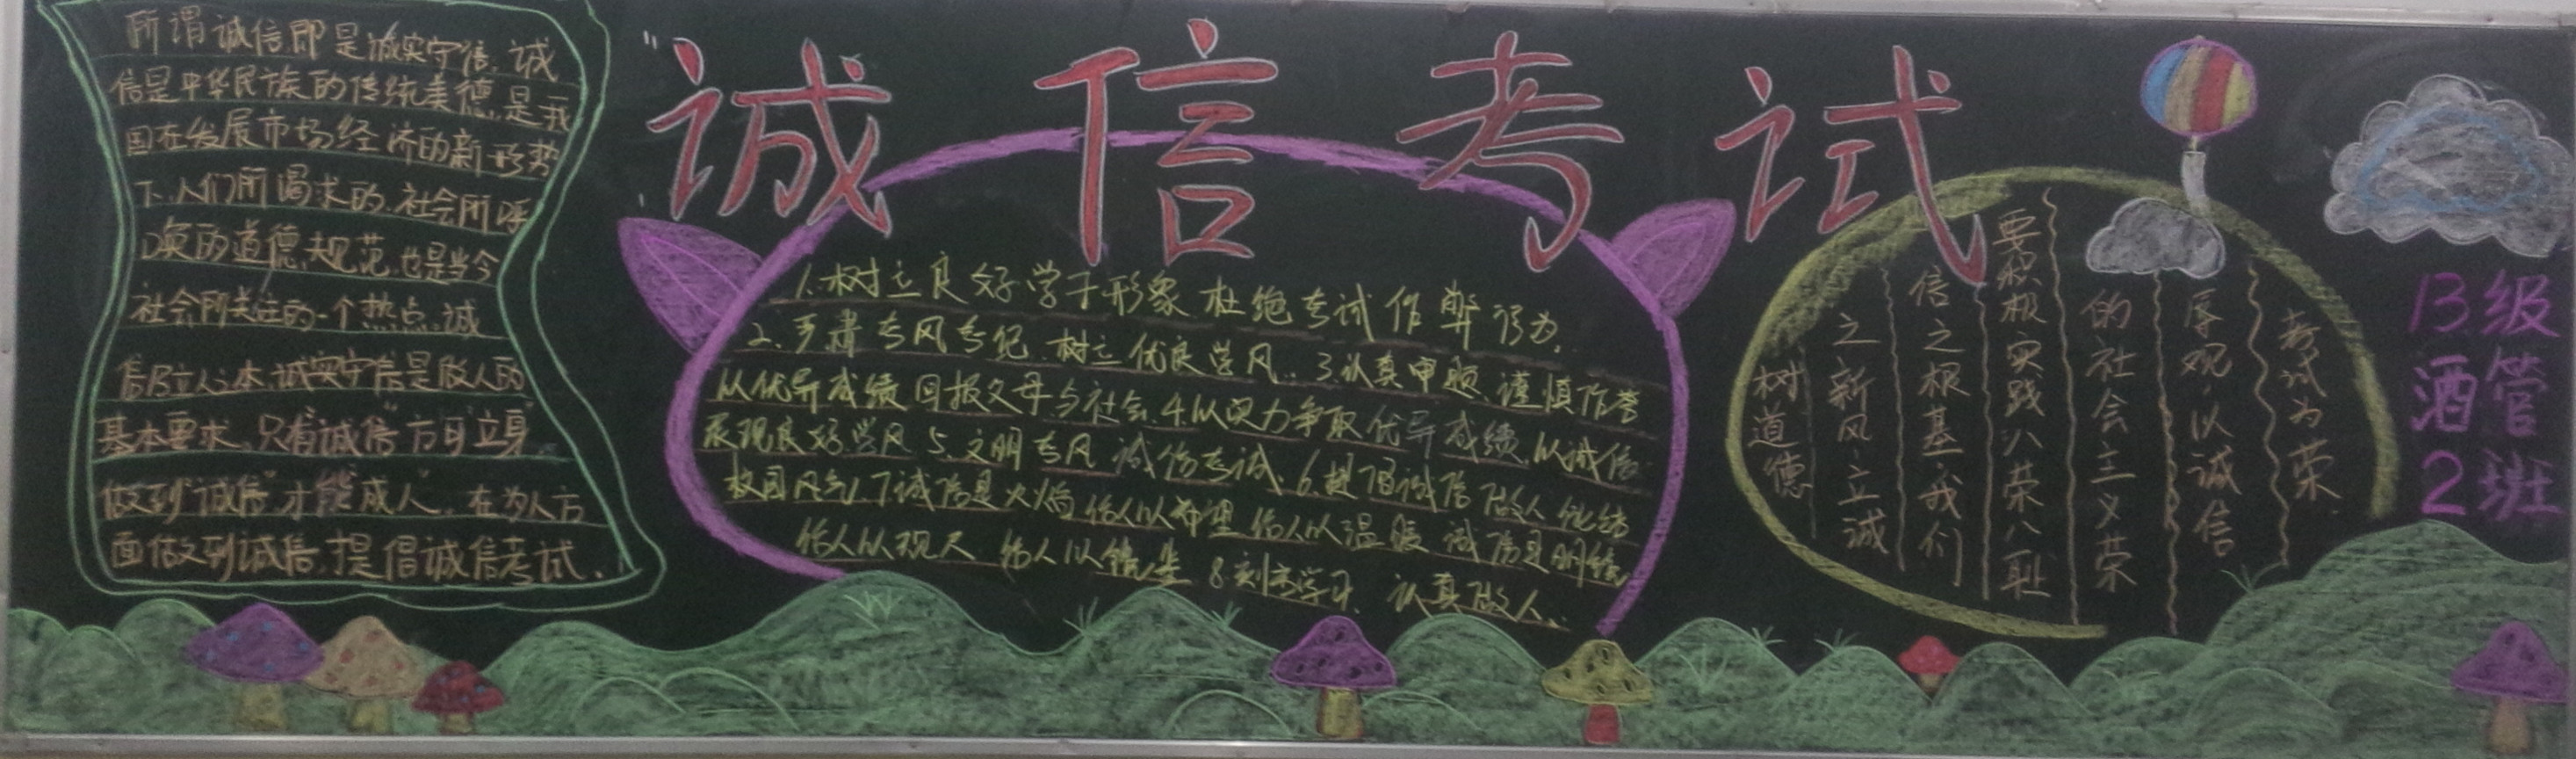 "诚信考试
所谓诚信,即是诚实守信,诚
信是中华民族的传统美德,是我
国在发展市场经济的新形势
下,人们所渴求的,社会所呼
唤的道德规范,也是当今
社会所关注的一个热点,诚
信乃立人之本,诚实守信是做人的
基本要求,只有"诚信"方可"立身"
做到"诚信"才能"成人",在为人方
面做到诚信,提倡诚信考试.
1.树立良好学子形象 杜绝考试作弊行为.
2.严肃考风考纪 树立优良学风. 3.认真审题,谨慎作答
以优异成绩回报父母与社会.4.以实力争取优异成绩,以诚信
展现良好学风 5.文明考风 诚信考试.6.提倡诚信做人 纯洁
校园风气.7诚信是火焰给人以希望给人以温暖 诚信是明镜
给人以观人 给人以镜鉴 8.刻苦学习 认真做人..
树道德
之新风,立诚
信之根基,我们
要积极实践八荣八耻
的社会主义荣
辱观,以诚信
考试为荣.
13级
酒管
2班